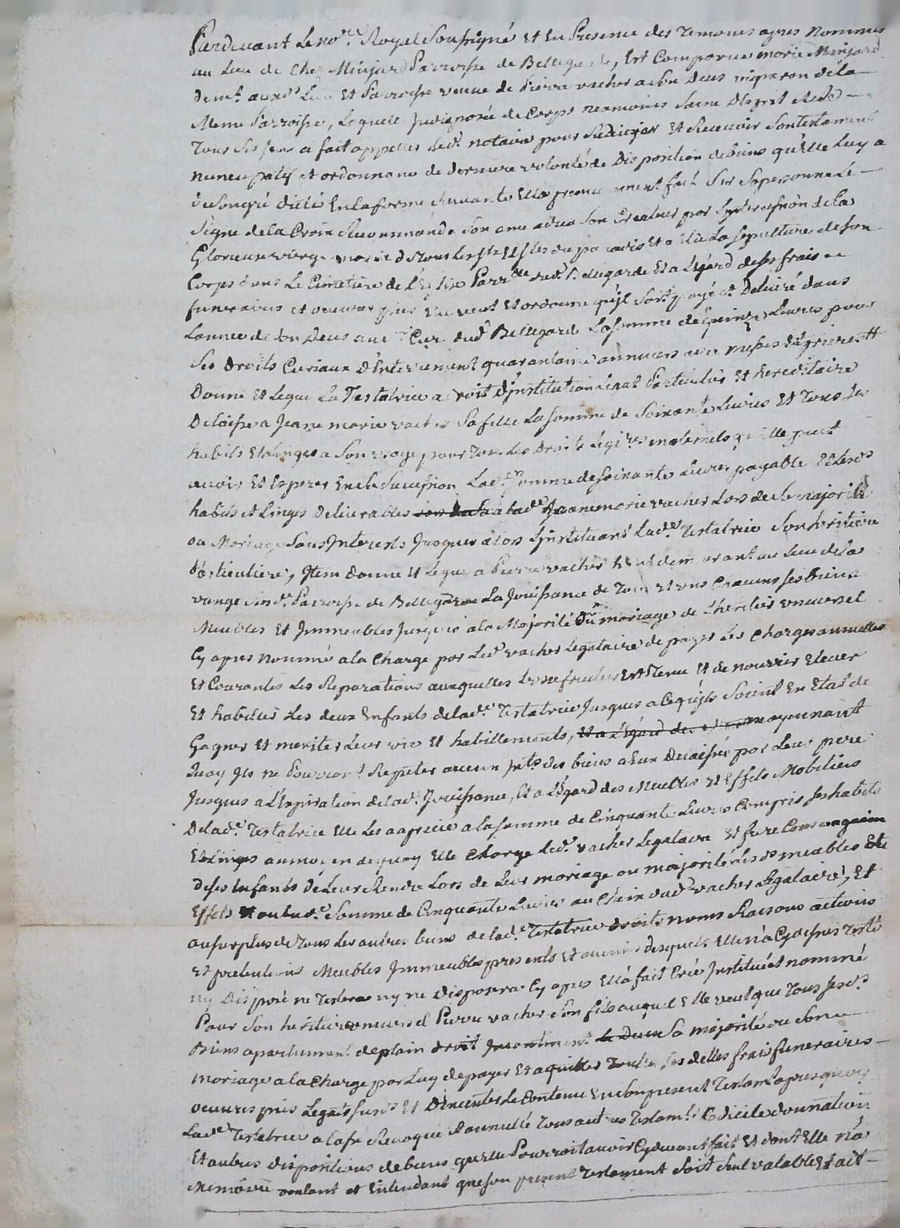 Pardevant Le not.re Royal Soussigné Et En Presence des Temoins apres Nommes
au Lieu de Chez Minjard Parroisse de Bellegarde, Est Comparue marie Minjard
Dem.t aux d. Lieu Et Parroisse veuve de Pierre vacher a son Deces vigneron de la
Meme Parroisse, Laquelle indisposé de Corps neanmoins Saine D'esprit
Tous Ses sens a fait appeller Led. notaire pour Rediger Et Recevoir Son testament
nuncupatif et ordonnance de derniere volonté de Disposition de biens qu'Elle Luy a
de Son gré dicté En la forme Suivante Ella premierement fait Sur Sa personne Le
Signe de la Croix Recommande Son ame a dieu Son Createur par Lintercession de la
Glorieuse vierge marie Et Tous Les Sts Et Stes du paradis Et a Elu La Sepulture de Son
Corps dans Le Cimetière de L'Eglise Parr.lle dud. Bellegarde Et a L'Egard de Ses frais
funeraires et oeuvres pies Elle veut Et ordonne qu'il Soit payé et Delivré dans
Lannee de Son Deces au Curé dud. Bellegarde La Somme de Livres pour
Ses Droits Curiaux D'Enterrement quarantaine annuers messes Et prieres
Donne Et Legue La Testatrice a Droit D'institution Particulier Et hereditaire
Delaisse a Jeane marie vacher Sa fille La Somme de Soixante Livres Et Tous Ses
habits Et Linges a Son usage pour Tous Les Droits Legitimes maternels qu'elle peut
avoir Et Esperer En Sa Succession Lad. Somme de Soixante Livres payable Et Lesd.
habits et Linges Delivrables a lad. Jeanne marie vacher Lors de Sa majorité
ou Mariage Sans Interests Jusques alors L'instituant Lad. Testatrice Son héritiere
Particuliere, Item Donne Et Legue a Pierre vacher demeurant au Lieu de la
Parroisse de Bellegarde La Jouissance de Tous et uns Chacuns Ses Biens
Meubles Et Immeubles Jusques a la Majorité Ou mariage de L'heritier universel
Cy apres nommé a la Charge par Led. vacher Legataire de payer Les Charges annuelles
Et Courantes Les Reparations auxquelles L'usufruitier Est Tenu Et de nourrir Elever
Et habiller Les deux Enfants de lad. Testatrice Jusques a Ce qu'ils Soient En Etat de
Gagner Et meriter Leur vie Et habillements, moyennant
Quoy Ils ne Pourront Repeter aucun Int.ts des biens a Eux Delaissés par Leur pere
Jusques a L'Expiration de lad. Jouissance, Et a L'Egard des Meubles Et Effets Mobiliers
De lad. Testatrice Elle Les a apprecié a la Somme de Cinquante Livres Compris Ses habits
Et Linges au moyen de quoy Elle Charge Led. vacher Legataire
de Ses Enfants de Leur Rendre Lors de Leur mariage ou majorité Lesd. meubles Et
Effets ou lad. Somme de Cinquante Livres au Choix dud. vacher Legataire, Et
au Surplus de Tous Les autres biens de lad. Testatrice droits noms Raisons actions
Et pretentions Meubles Immeubles presents Et avenir desquels Elle n'a Cy dessus Testé
ny Disposé ne Testera ny ne Disposera Cy apres Ella fait Créé Institué et nommé
Pour Son heritier universel Pierre vacher Son fils auquel Elle veut que Tous Sesd.
Biens apartiennent de plain droit Sa majorité ou Son
mariage a la Charge par Luy de payer Et aquitter Toutes Ses dettes frais funeraires
oeuvres pies Legats Susd. Et D'executer Le Contenu En Son present Testam.t
Lad. Testatrice a Cassé Revoqué Et annullé Tous autres Testam.ts Codicile donnation
Et autres Dispositions de biens qu'elle Pourroit avoir Cy devant fait Et dont Elle n'a
Memoire voulant et Entendant que Son present Testament Soit Seul valable